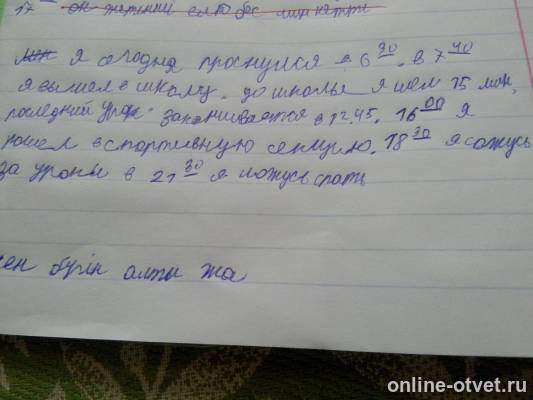 17 он жетінші елу бес мин кетті
Мен Я сегодня проснулся в 6 30. в 7 40
я вышел в школу. до школы я шел 15 мин,
последний урок заканчивается в 12.45. 16 00 я
пошел в спортивную секцию. 18 30 я сажусь
за уроки в 21 30 я ложусь спать
бүгін алты жа
online-otvet.ru